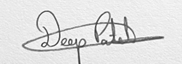 Deep Patel